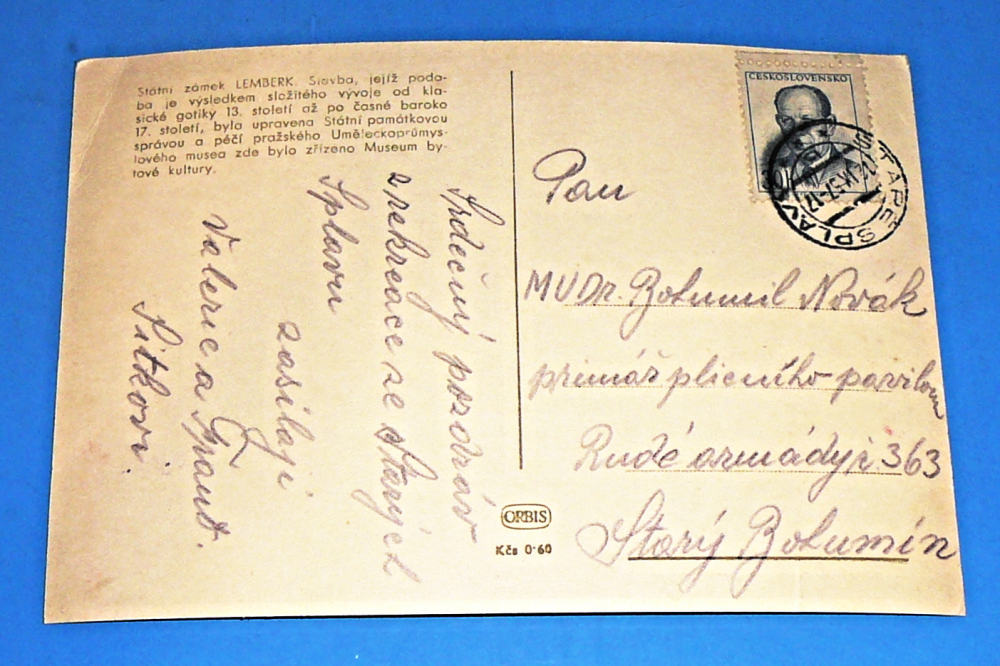 Státní zámek LEMBERK. Stavba, jejíž podo-
ba je výsledkem složitého vývoje od kla-
sické gotiky 13. století až po časné baroko
17. století, byla upravena Státní památkovou
správou a péčí pražského Uměleckoprůmys-
lového musea zde bylo zřízeno Museum by-
tové kultury.
Srdečný pozdrav
z rekreace ze Starých
Splavů
zasílají
Valerie a Frant.
Sítkovi.
ORBIS
Kčs 0·60
ČESKOSLOVENSKO
STARÉ SPLAVY
Pan
MUDr. Bohumil Novák
primář plicního pavilonu
Rudé armády 363
Starý Bohumín